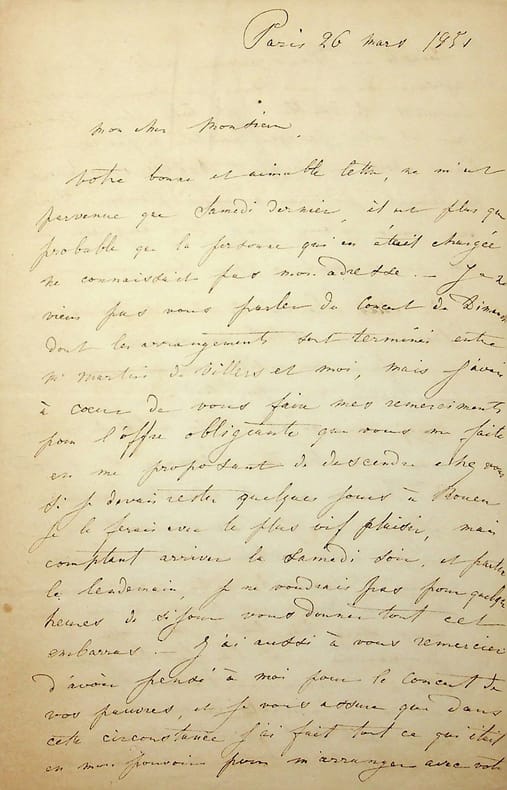 Paris 26 mars 1851
mon cher Monsieur,
Votre bonne et aimable lettre, ne m'est
parvenue que Samedi dernier, il est plus que
probable que la personne qui en était chargée
ne connaissait pas mon adresse. — Je ne
viens pas vous parler du Concert de Dimanche
dont les arrangements sont terminés entre
Mr martin de Villers et moi, mais j'avais
à cœur de vous faire mes remerciments
pour l'offre obligeante que vous me faite
en me proposant de descendre chez vous
si je devais rester quelques jours à Rouen
je le ferais avec le plus vif plaisir, mais
comptant arriver le Samedi soir, et partir
le lendemain, je ne voudrais pas pour quelques
heures de séjour vous donner tout cet
embarras. — J'ai aussi à vous remercier
d'avoir pensé à moi pour le Concert de
vos pauvres, et je vous assure que dans
cette circonstance j'ai fait tout ce qui était
en mon pouvoir pour m'arranger avec votre